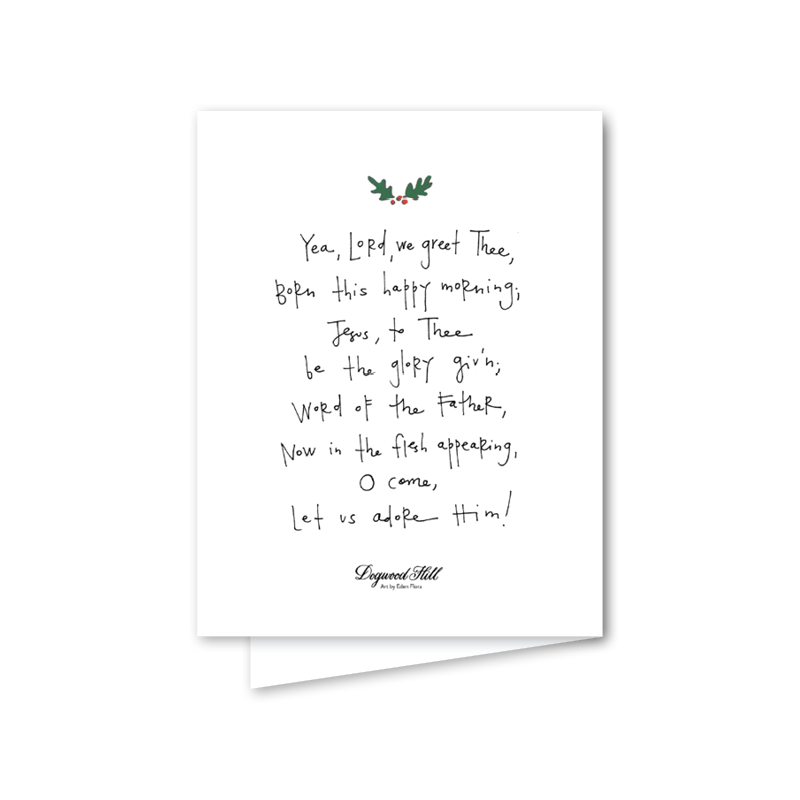 Yea, Lord, we greet Thee,
Born this happy morning;
Jesus, to Thee
be the glory giv'n;
Word of the Father,
Now in the flesh appearing,
O come,
Let us adore Him!
Dogwood Hill
Art by Eden Flora